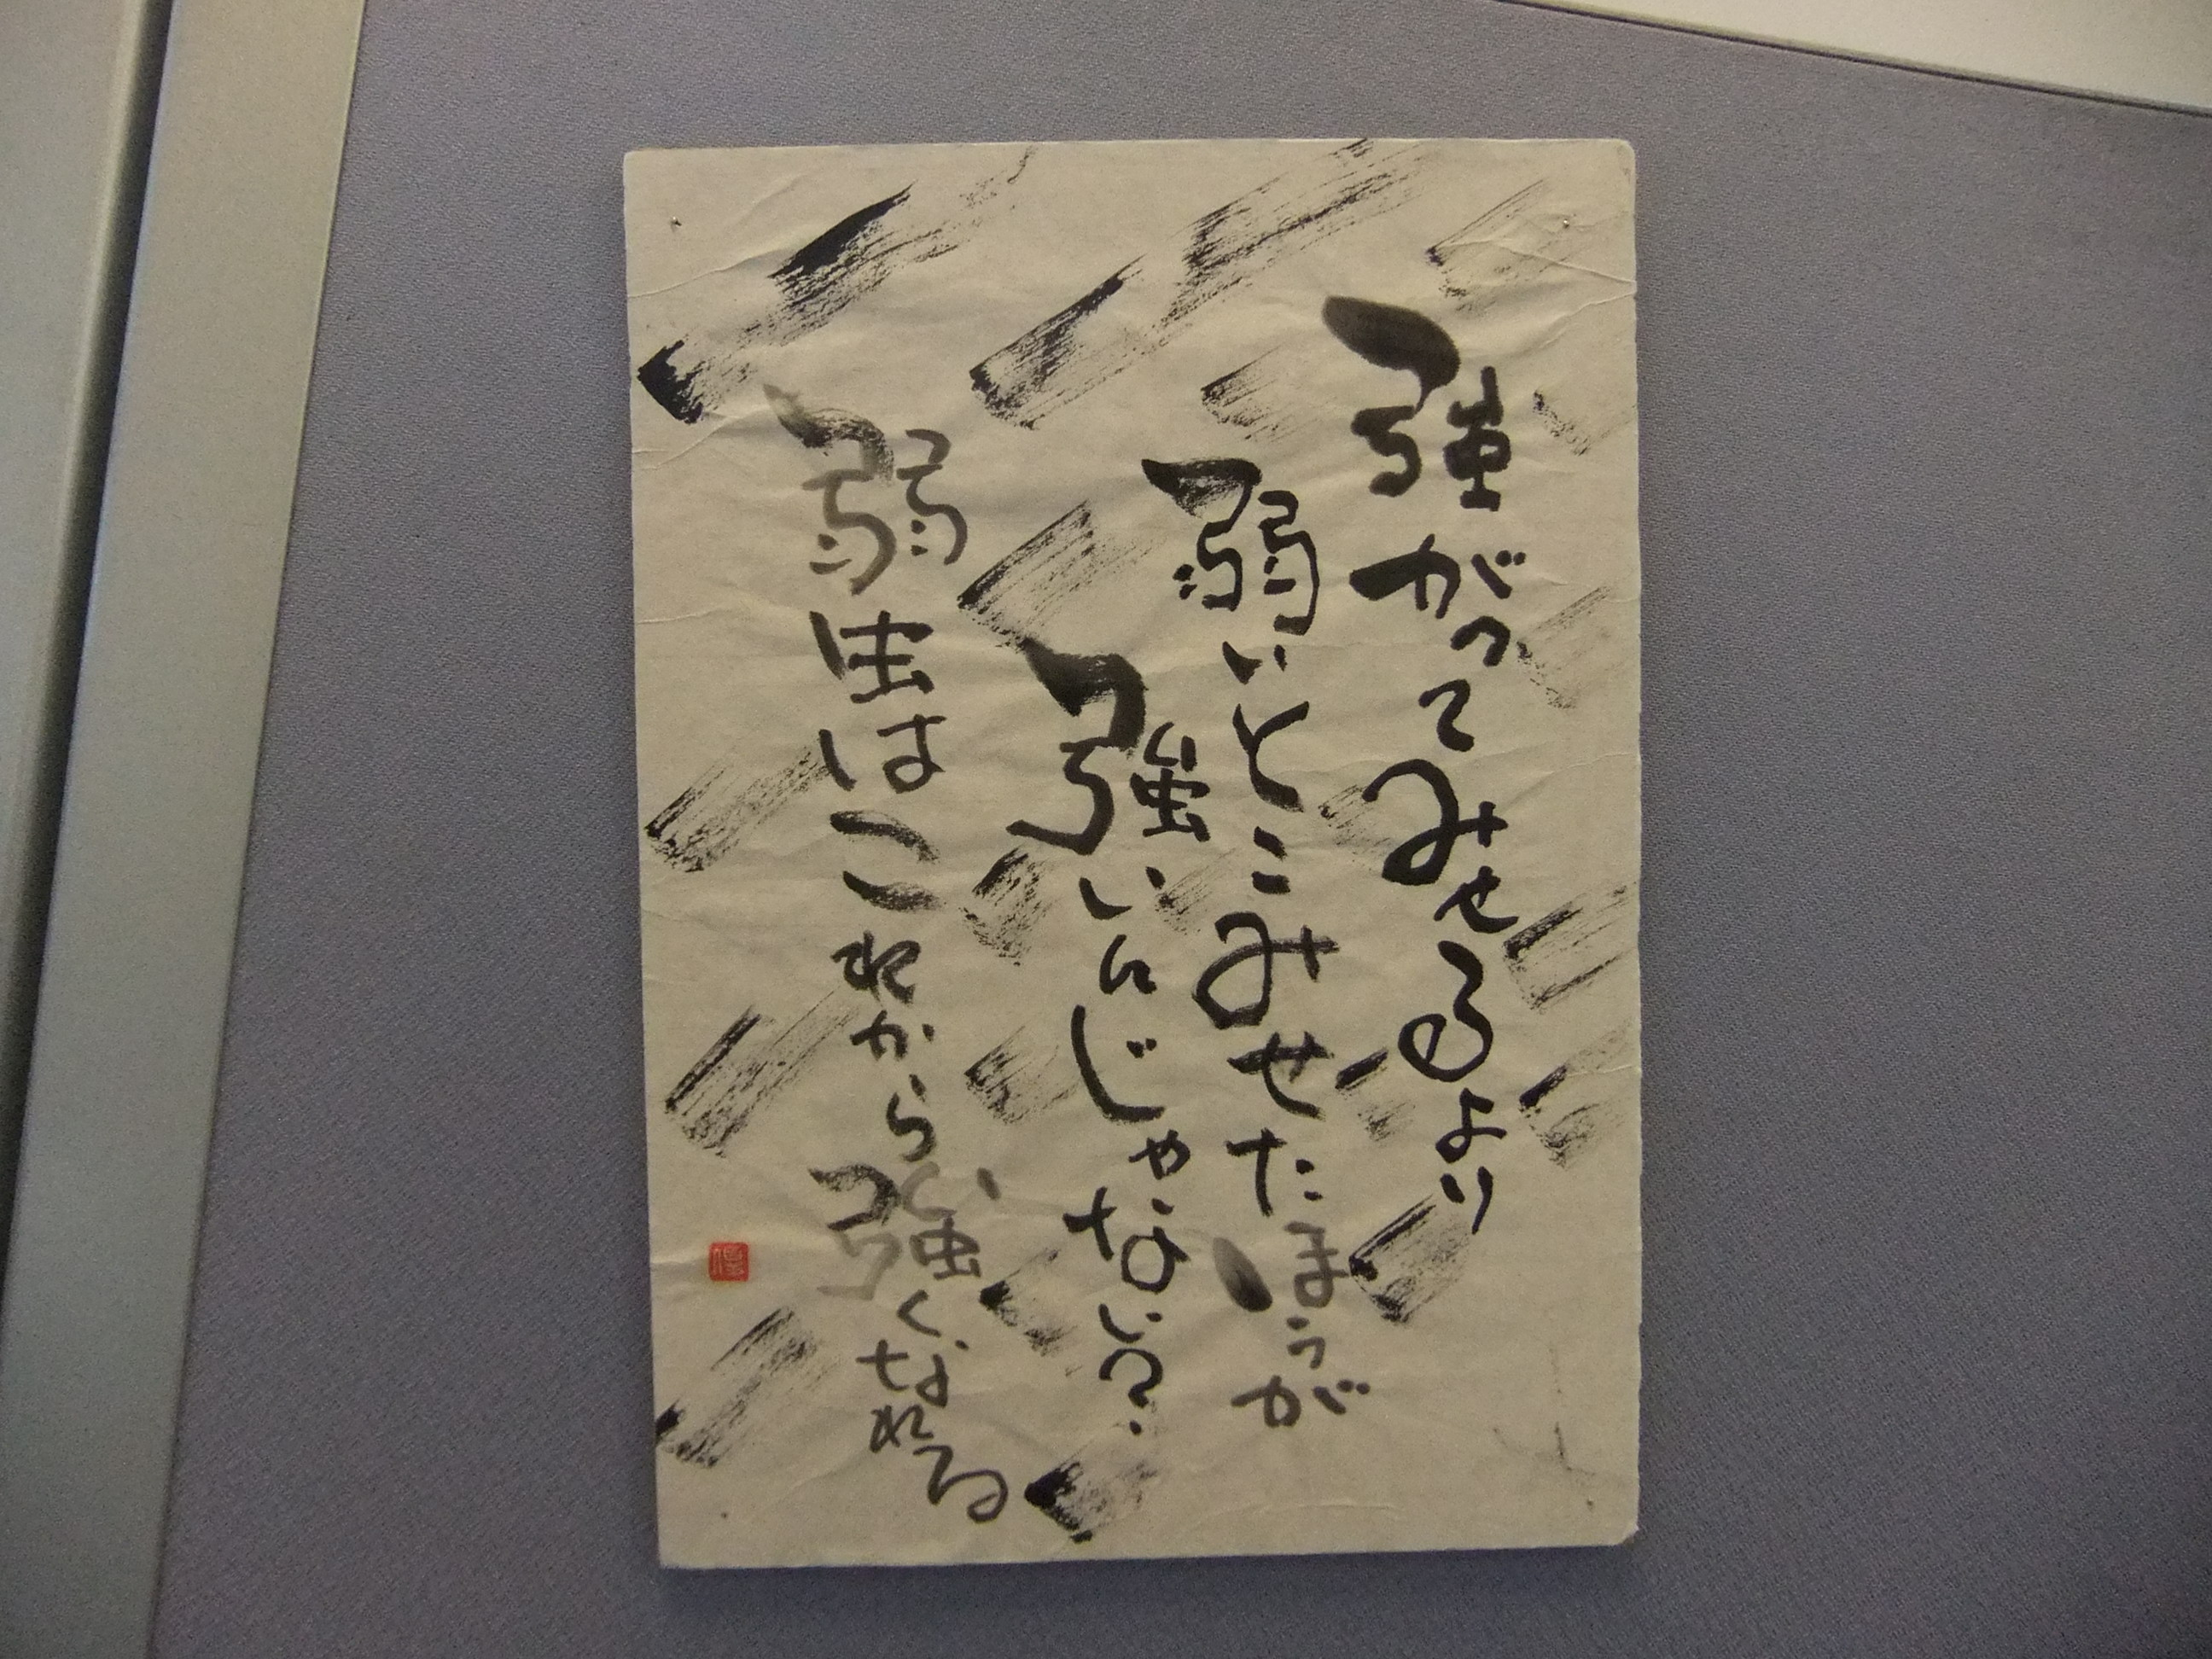 強がってみせるより
弱いとこみせたほうが
強いんじゃない?
弱虫はこれから強くなれる